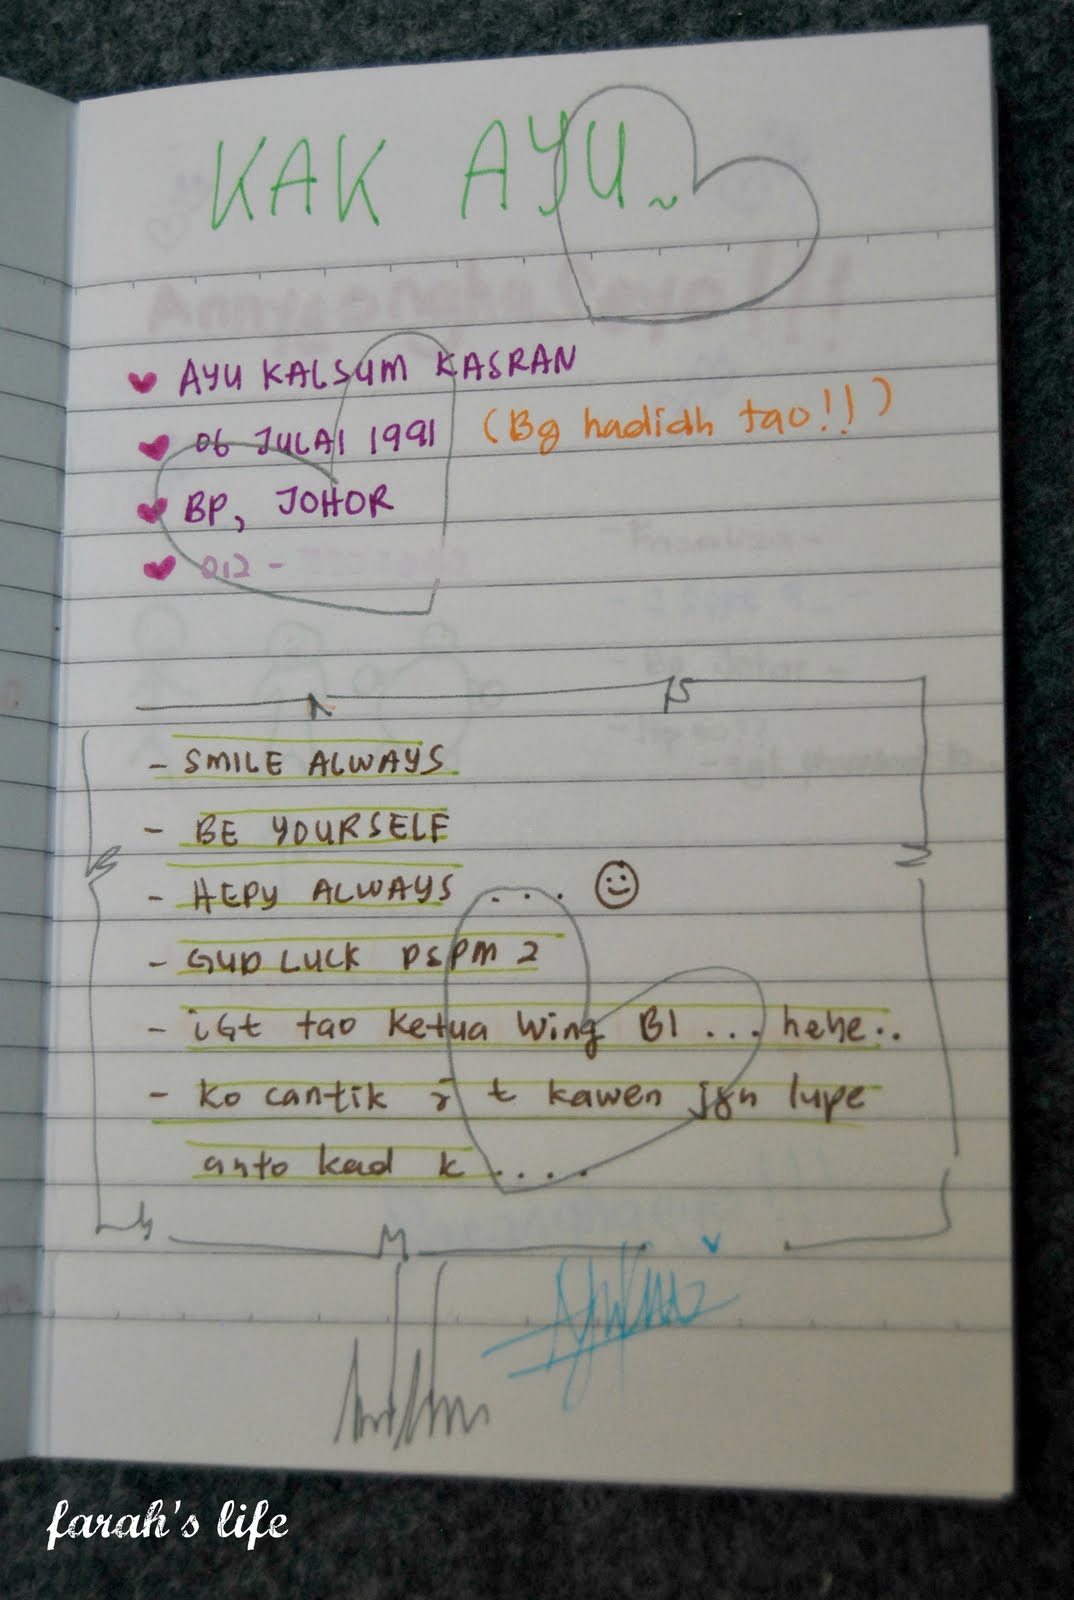 KAK AYU~
AYU KALSUM KASRAN
06 JULAI 1991 (Bg hadidh tao!!)
BP, JOHOR
012 -
- SMILE ALWAYS
- BE YOURSELF
- HEPY ALWAYS ... ☺
- GUD LUCK PSPM 2
- iGt tao ketua wing B1 ... hehe..
- ko cantik r t kawen jgn lupe
anto kad k ....
farah's life